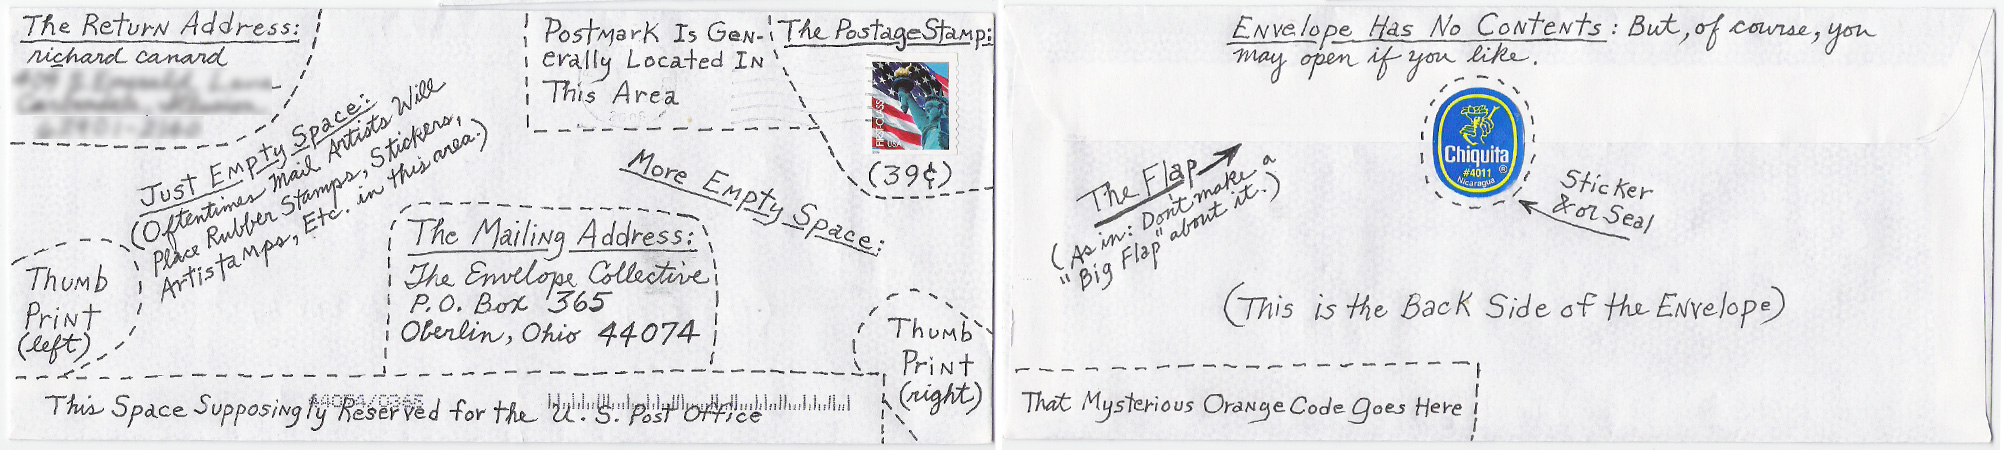 The Return Address:
richard canard
Postmark Is Gen-
erally Located In
This Area
The Postage Stamp:
FIRST-CLASS
USA
(39¢)
Just Empty Space:
(Oftentimes Mail Artists Will
Place Rubber Stamps, Stickers,
Artistamps, Etc. in this area.)
More Empty Space:
Thumb
Print
(left)
The Mailing Address:
The Envelope Collective
P.O. Box 365
Oberlin, Ohio 44074
Thumb
Print
(right)
This Space Supposingly Reserved for the U.S. Post Office
Envelope Has No Contents: But, of course, you
may open if you like.
Chiquita
®
#4011
Nicaragua
The Flap
(As in: Don't make a
"Big Flap" about it.)
Sticker
&or Seal
(This is the Back Side of the Envelope)
That Mysterious Orange Code Goes Here